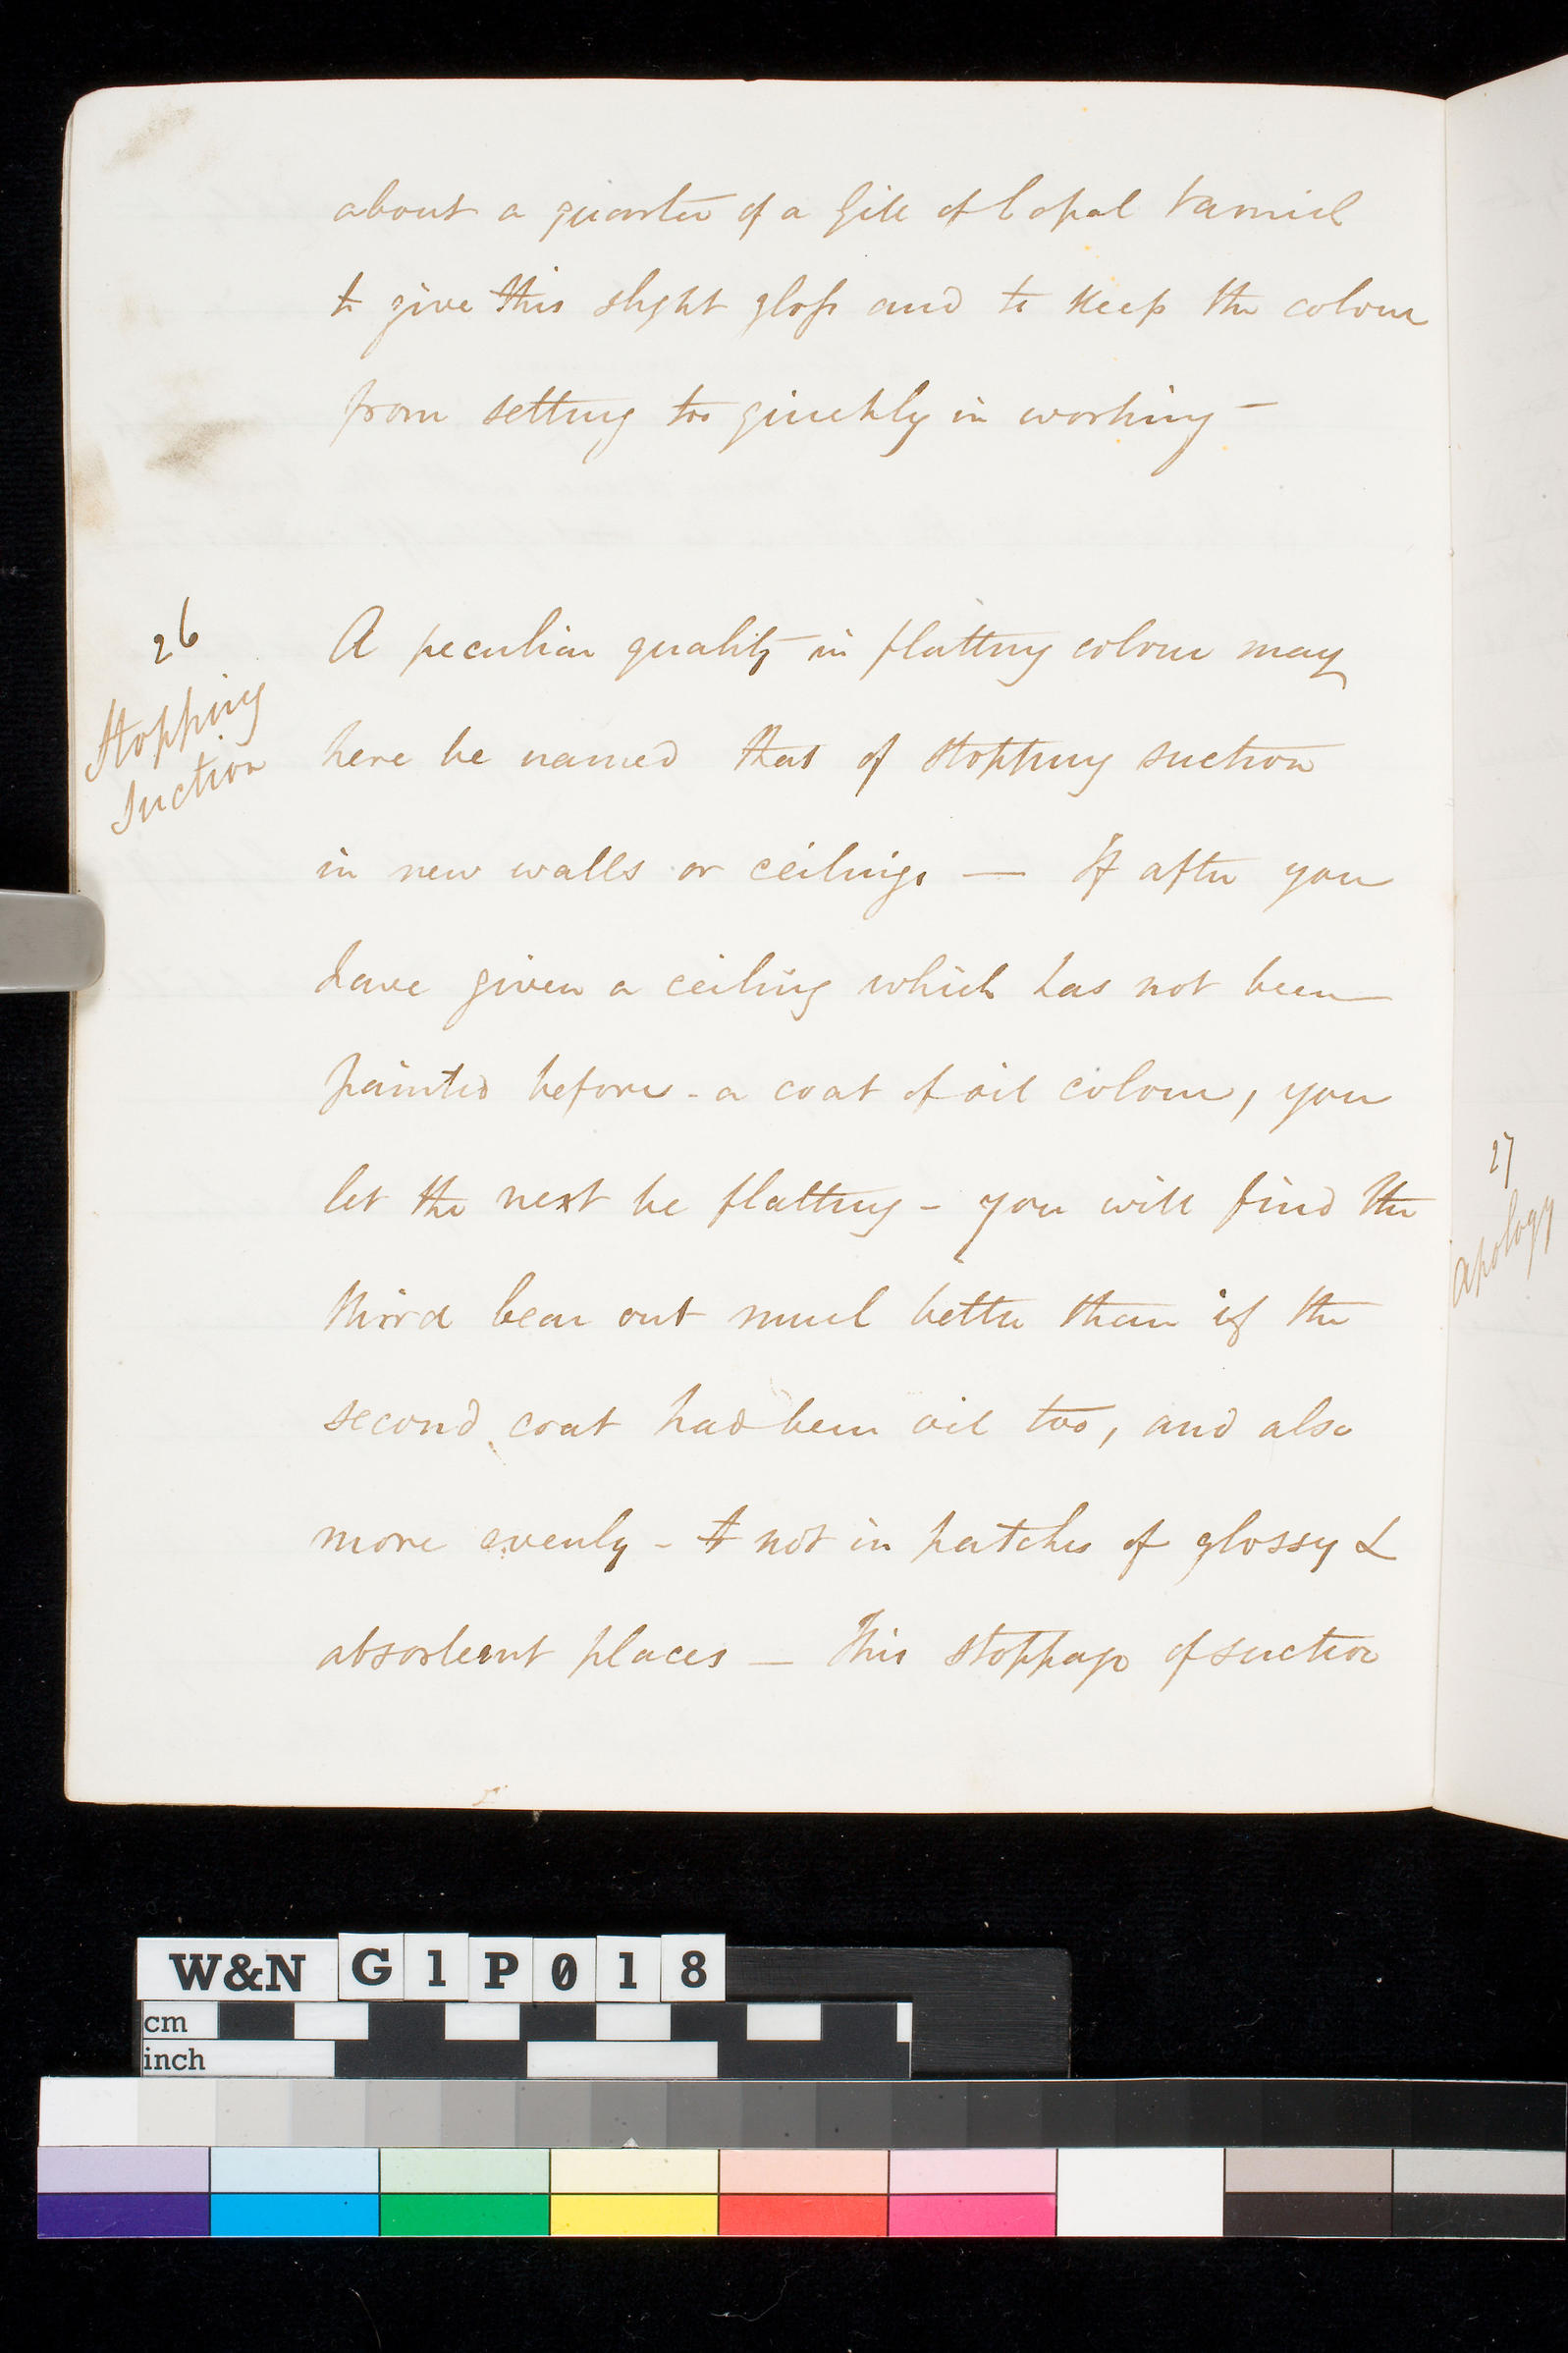 about a quarter of a Gill of Copal Varnish
to give this slight gloss and to keep the colour
from setting too quickly in working —
26
Stopping
Suction
A peculiar quality in flatting colour may
here be named that of stopping suction
in new walls or ceilings — If after you
have given a ceiling which has not been
painted before - a coat of oil colour, you
let the next be flatting - you will find the
third bear out much better than if the
second coat had been oil too, and also
more evenly - & not in patches of glossy &
absorbent places — This stoppage of suction
27
apology
W&N G1P018
cm
inch